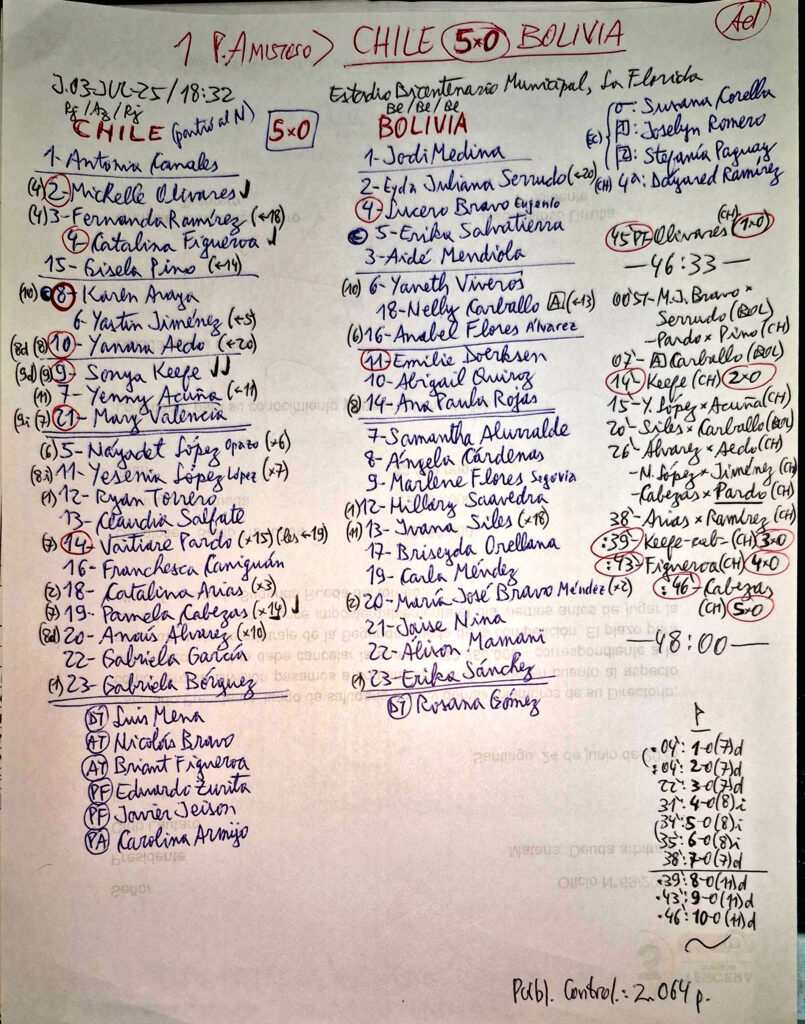 Ael
1 P. Amistoso > CHILE 5x0 BOLIVIA
J.03-JUL-25/18:32
Estadio Bicentenario Municipal, La Florida
Rj/Az/Rj
CHILE (partió al N)
5x0
1- Antonia Canales
(4) 2- Michelle Olivares
(4) 3- Fernanda Ramírez (←18)
4- Catalina Figueroa
15- Gisela Pino (←14)
(10) 8- Karen Araya
6- Yastin Jiménez (←5)
(8d (8) 10- Yanara Aedo (←20)
(9d) (9) 9- Sonya Keefe
(11) 7- Yenny Acuña (←11)
(9i (7) 21- Mary Valencia
(6) 5- Nayadet López Opazo (×6)
(8i) 11- Yesenia López López (×7)
(1) 12- Ryan Torrero
13- Claudia Salfate
(7) 14- Vaitiare Pardo (×15) (les←19)
16- Franchesca Caniguán
(2) 18- Catalina Arias (×3)
(7) 19- Pamela Cabezas (×14)
(8d) 20- Anaís Álvarez (×10)
22- Gabriela García
(1) 23- Gabriela Bórquez
DT Luis Mena
AT Nicolás Bravo
AT Briant Figueroa
PF Eduardo Zurita
PF Javier Jeison
PA Carolina Armijo
Be/Be/Be
BOLIVIA
1- Jodi Medina
2- Eyda Juliana Serrudo (←20)
4- Lucero Bravo Eugenio
C 5- Erika Salvatierra
3- Aidé Mendiola
(10) 6- Yaneth Viveros
18- Nelly Carballo A (←13)
(6) 16- Anabel Flores Álvarez
11- Emilie Doerksen
10- Abigail Quiroz
(8) 14- Ana Paula Rojas
7- Samantha Alurralde
8- Ángela Cárdenas
9- Marlene Flores Segovia
(1) 12- Hillary Saavedra
(11) 13- Ivana Siles (×18)
17- Briseyda Orellana
19- Carla Méndez
(2) 20- María José Bravo Méndez (×2)
21- Jaise Nina
22- Alison Mamani
(1) 23- Erika Sánchez
DT Rosana Gómez
o- Susana Corella
1 - Joselyn Romero
2 - Stefanía Paguay
(CH) 4a: Dayared Ramírez
45PT Olivares (CH) 1x0
—46:33—
00'ST- M.J. Bravo ×
Serrudo (BOL)
- Pardo × Pino (CH)
07'- A Carballo (BOL)
14'- Keefe (CH) 2x0
15'- Y. López × Acuña (CH)
20'- Siles × Carballo (BOL)
26'- Álvarez × Aedo (CH)
- N. López × Jiménez (CH)
- Cabezas × Pardo (CH)
38'- Arias × Ramírez (CH)
:39'- Keefe-cab- (CH) 3x0
:43'- Figueroa (CH) 4x0
:46'- Cabezas
(CH) 5x0
—48:00—
•04': 1-0(7)d
•04': 2-0(7)d
22': 3-0(7)d
31': 4-0(8)i
34': 5-0(8)i
35': 6-0(8)i
38': 7-0(7)d
•39': 8-0(11)d
•43': 9-0(11)d
•46': 10-0(11)d
Públ. Control.: 2.064 p.